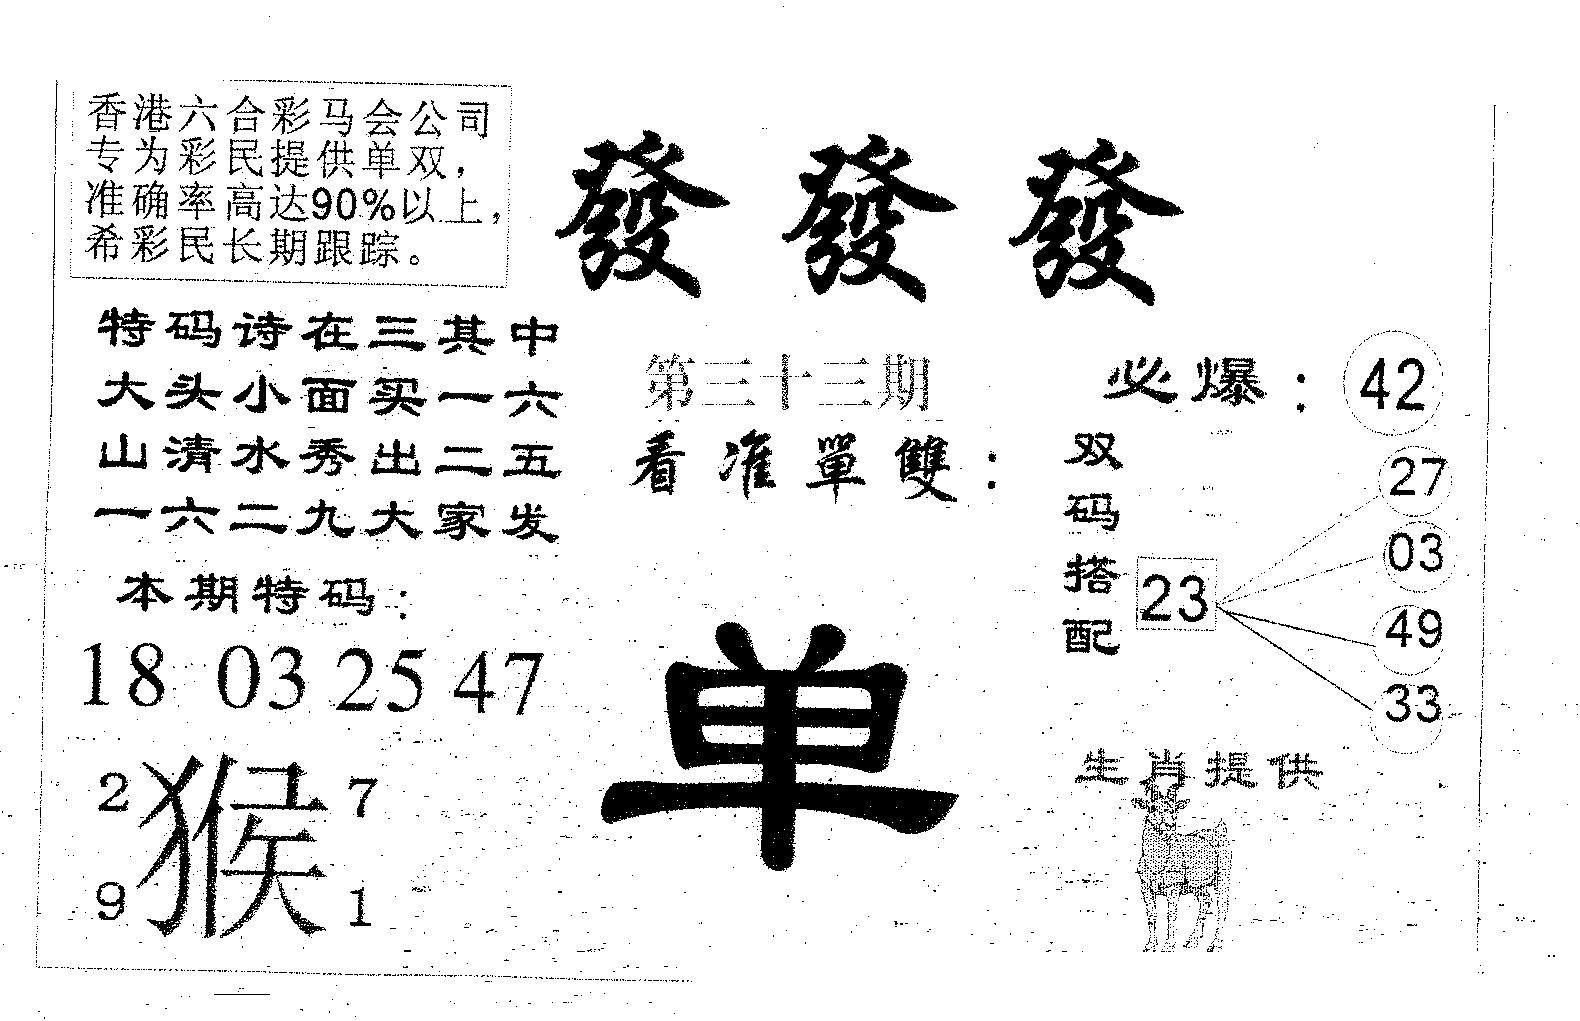 香港六合彩马会公司
专为彩民提供单双，
准确率高达90%以上，
希彩民长期跟踪。
發 發 發
特码诗在三其中
大头小面买一六
山清水秀出二五
一六二九大家发
本期特码：
18 03 25 47
2 7
猴
9 1
第三十三期
看准單雙：
单
必爆：42
双码搭配
23
27
03
49
33
生肖提供